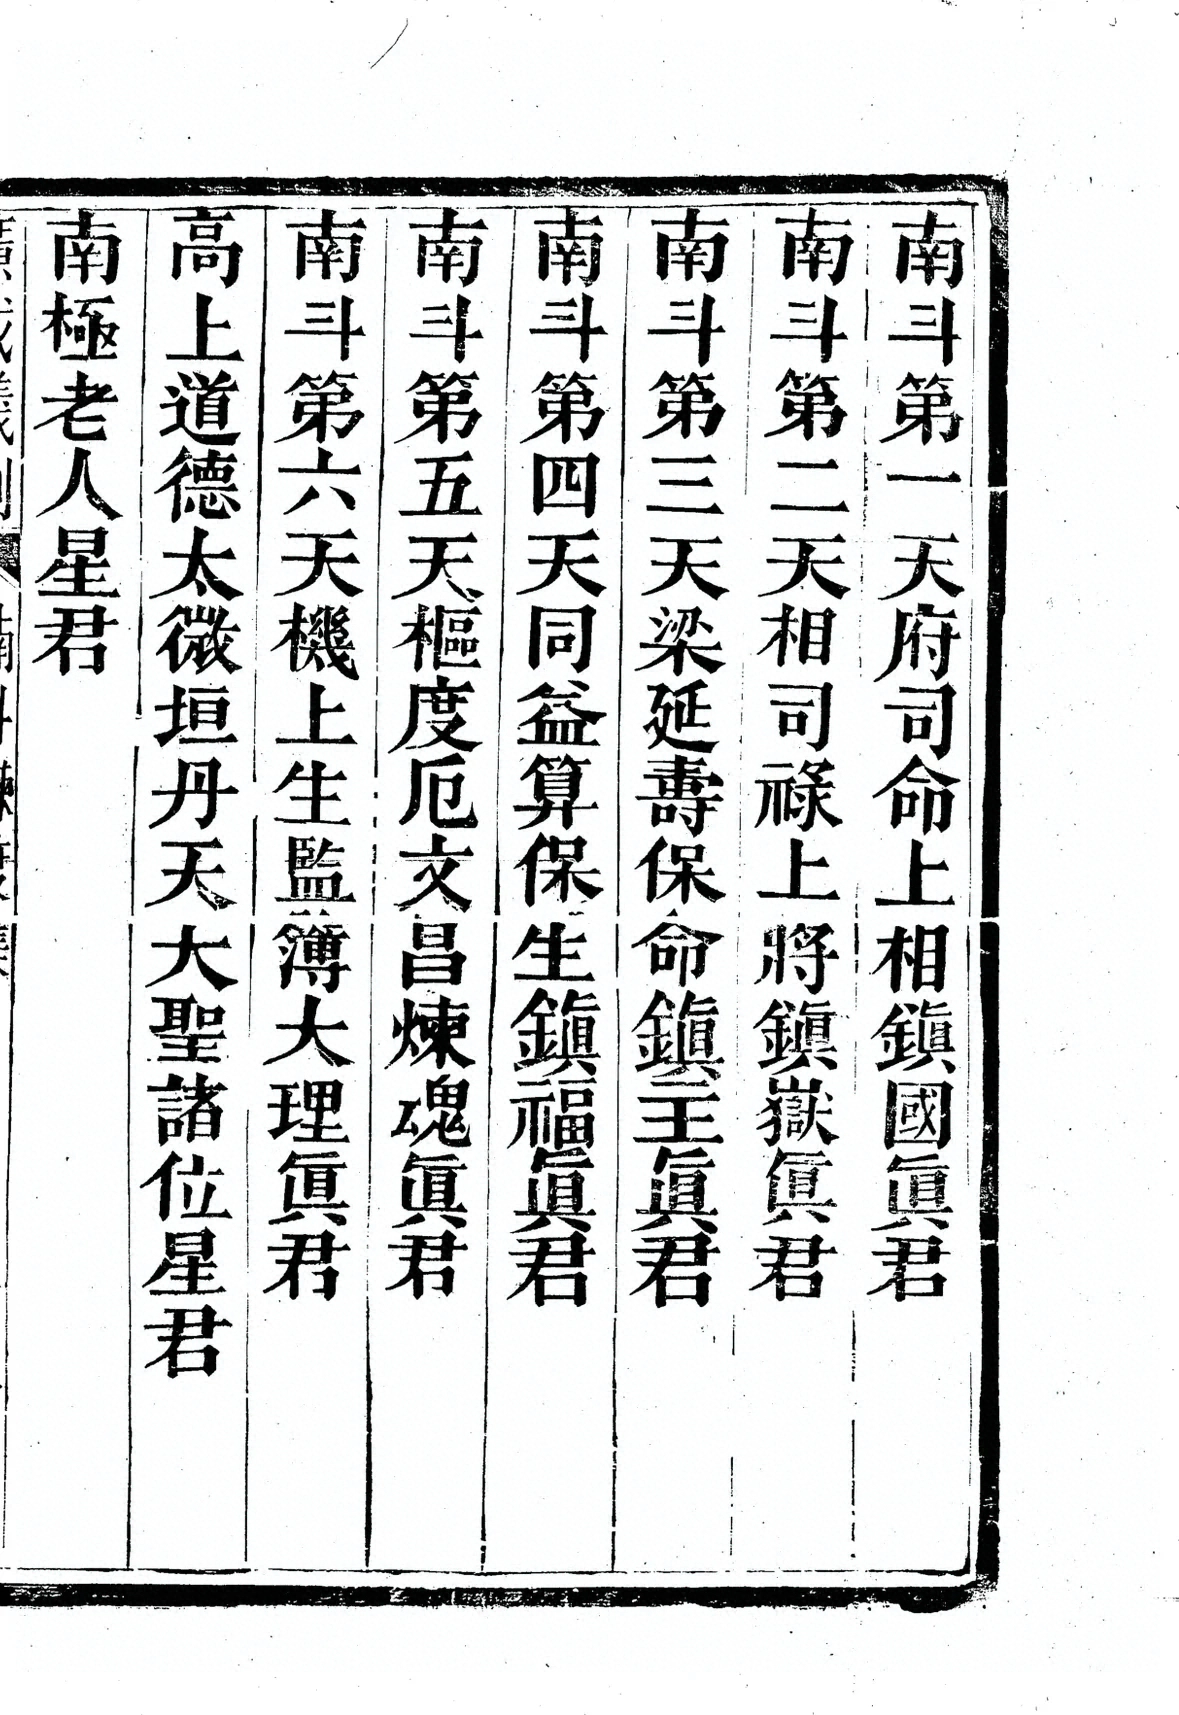 南斗第一天府司命上相鎭國眞君
南斗第二天相司祿上將鎭嶽眞君
南斗第三天梁延壽保命鎭主眞君
南斗第四天同益算保生鎭福眞君
南斗第五天樞度厄文昌煉魂眞君
南斗第六天機上生監簿大理眞君
高上道德太微垣丹天大聖諸位星君
南極老人星君